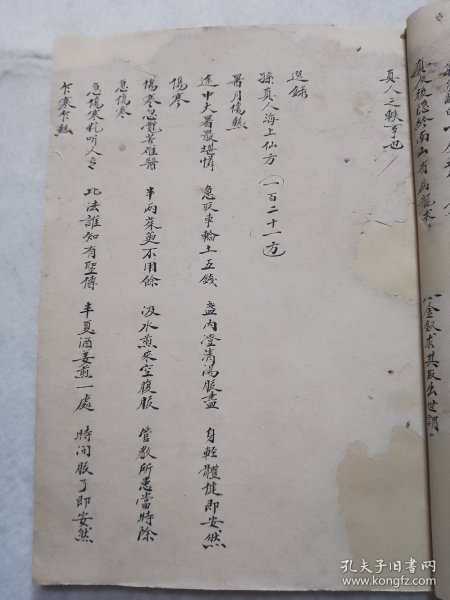 真人之軼事也
選錄
孫真人海上仙方（一百二十一方）
暑月傷熱
途中大暑最堪憐 急取車輪土五錢 盞內澄清湯服盡 身輕體健即安然
傷寒
傷寒感覺苦難醫 半兩茱萸不用餘 汲水煎來空腹服 管教所患當時除
急傷寒
急傷寒症听人言 此法誰知有聖傳 半夏酒姜煎一處 時間服了即安然
乍寒乍熱
孔夫子旧书网
www.kongfz.com